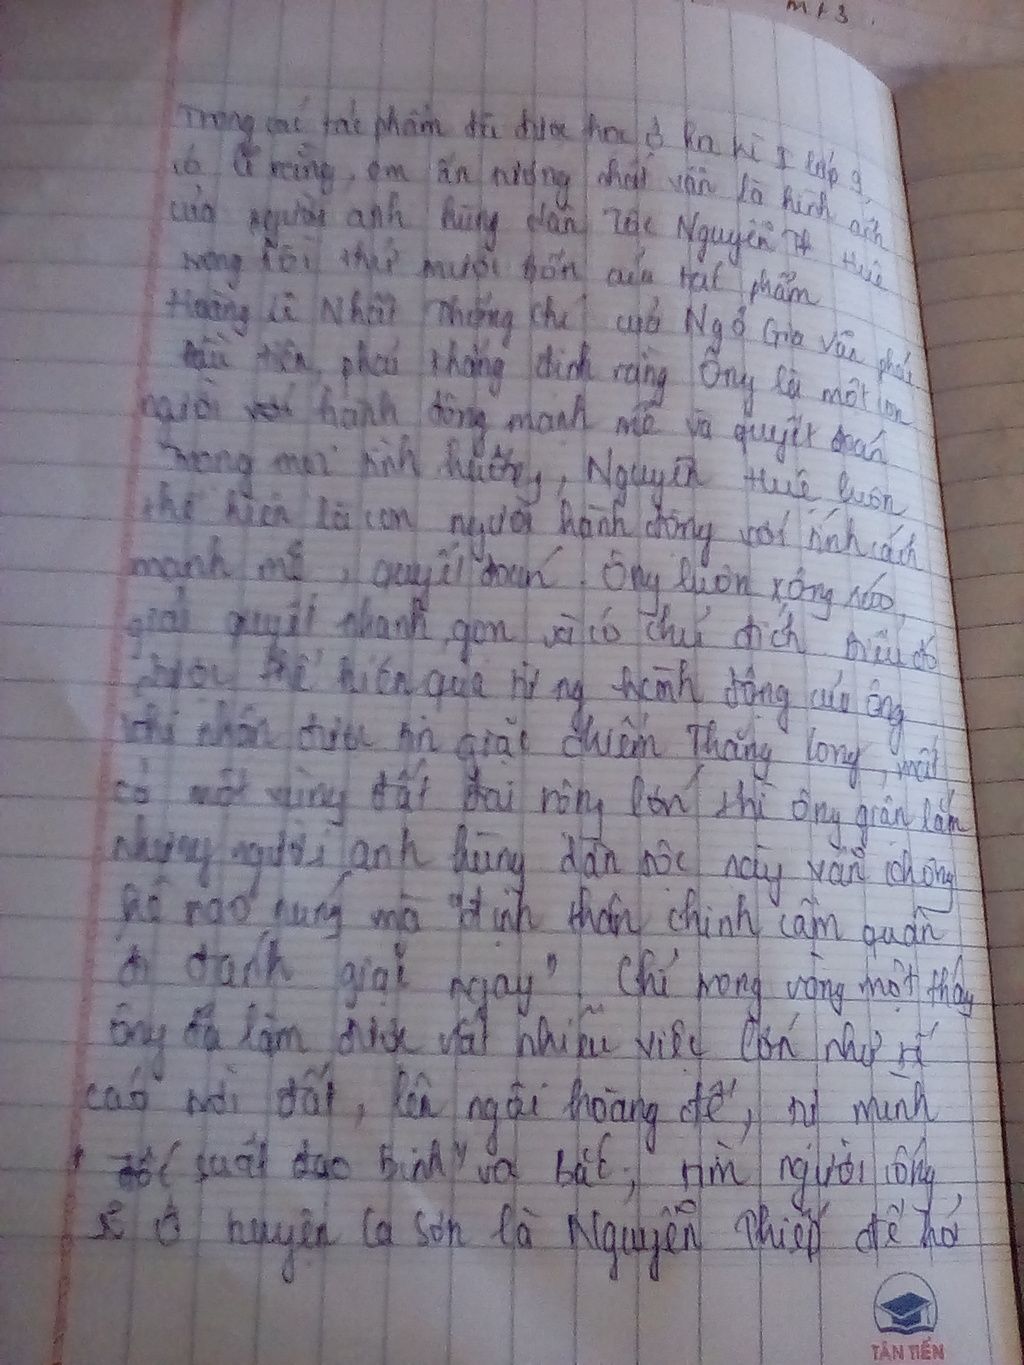 M13.
Trong các tác phẩm đã được học ở kì I lớp 9
có lẽ rằng, em ấn tượng nhất vẫn là hình ảnh
của người anh hùng dân tộc Nguyễn Huệ
trong hồi thứ mười bốn của tác phẩm
Hoàng Lê Nhất Thống Chí của Ngô Gia Văn phái
Đầu tiên, phải khẳng định rằng Ông là một con
người với hành động mạnh mẽ và quyết đoán
Trong mọi tình huống, Nguyễn Huệ luôn
thể hiện là con người hành động với tính cách
mạnh mẽ, quyết đoán. Ông luôn xông xáo,
giải quyết nhanh gọn và có chủ đích Điều đó
được thể hiện qua từng hành động của ông
khi nhận được tin giặc chiếm Thăng long, mất
cả một vùng đất đai rộng lớn thì ông giận lắm
nhưng người anh hùng dân tộc này vẫn chẳng
hề nao núng mà "định thân chinh cầm quân
đi đánh giặc ngay". Chỉ trong vòng một tháng
ông đã làm được rất nhiều việc lớn như tế
cáo trời đất, lên ngôi hoàng đế, tự mình
đốc suất đạo binh" ra bắc, tìm người cống
sĩ ở huyện La Sơn là Nguyễn Thiếp để hỏi
TÂN TIẾN